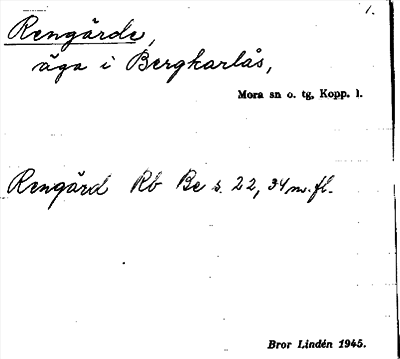 1.
Rengärde,
äga i Bergkarlås,
Mora sn o. tg, Kopp. l.
Rengärd Rb Be s. 22, 34 m. fl.
Bror Lindén 1945.